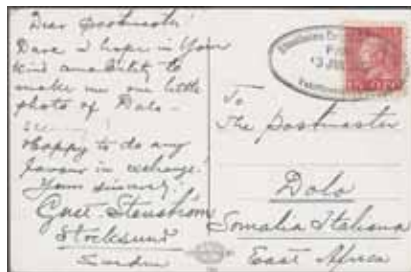 Dear postmaster!
Dare I hope in Your
kind amability to
make me one little
photo of Dolo —
Happy to do any
favour in exchange!
Yours sincerely
Stocksund
Sweden
To
The postmaster
Dolo
Somalia Italiana
East Africa